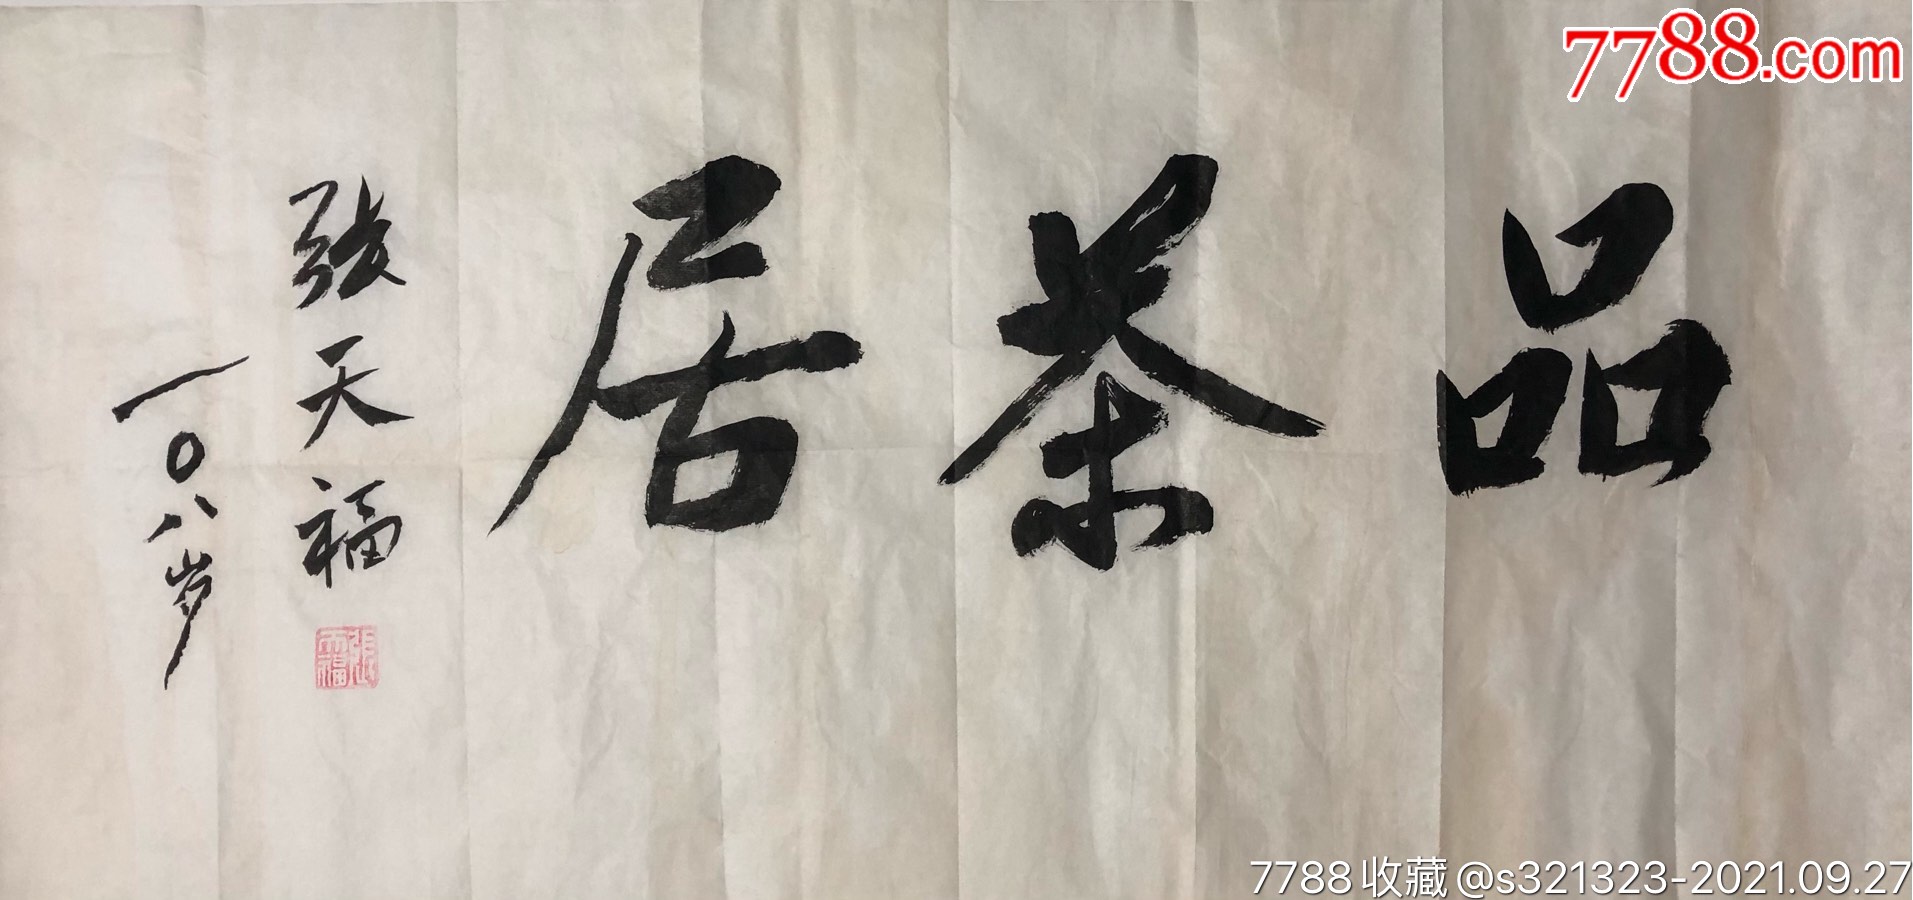 7788.com
品茶居
张天福
一〇八岁
張天福
7788收藏@s321323-2021.09.27